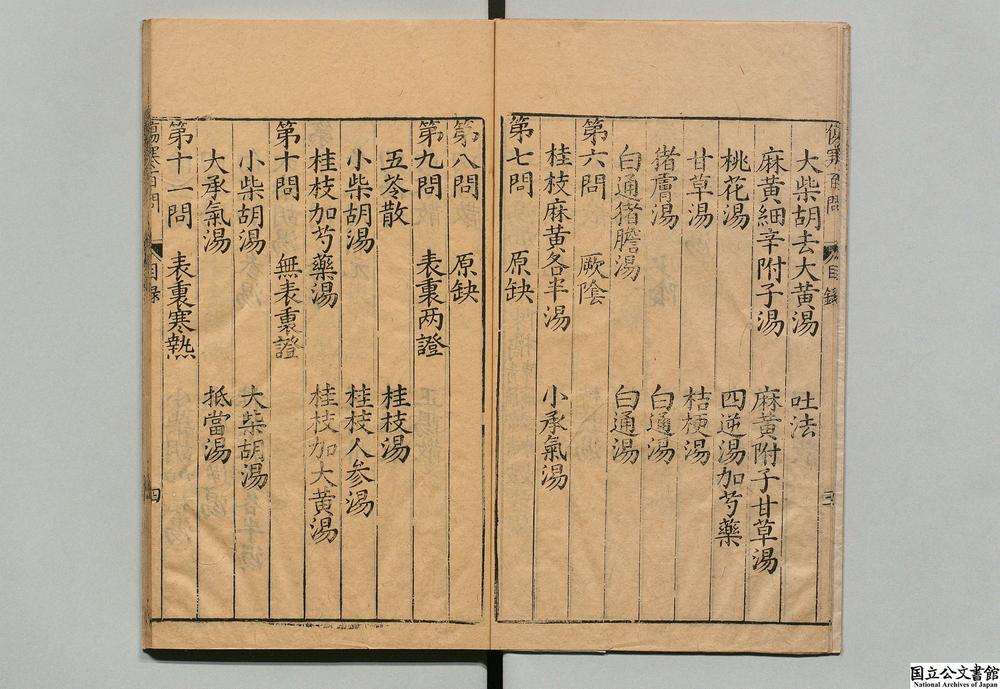 傷寒百問 目錄 三
大柴胡去大黃湯 吐法
麻黃細辛附子湯 麻黃附子甘草湯
桃花湯 四逆湯加芍藥
甘草湯 桔梗湯
猪膚湯 白通湯
白通猪膽湯 白通湯
第六問 厥陰
桂枝麻黃各半湯 小承氣湯
第七問 原缺
第八問 原缺
第九問 表裏两證
五苓散 桂枝湯
小柴胡湯 桂枝人参湯
桂枝加芍藥湯 桂枝加大黃湯
第十問 無表裏證
小柴胡湯 大柴胡湯
大承氣湯 抵當湯
第十一問 表裏寒熱
傷寒百問 目錄 四
国立公文書館
National Archives of Japan